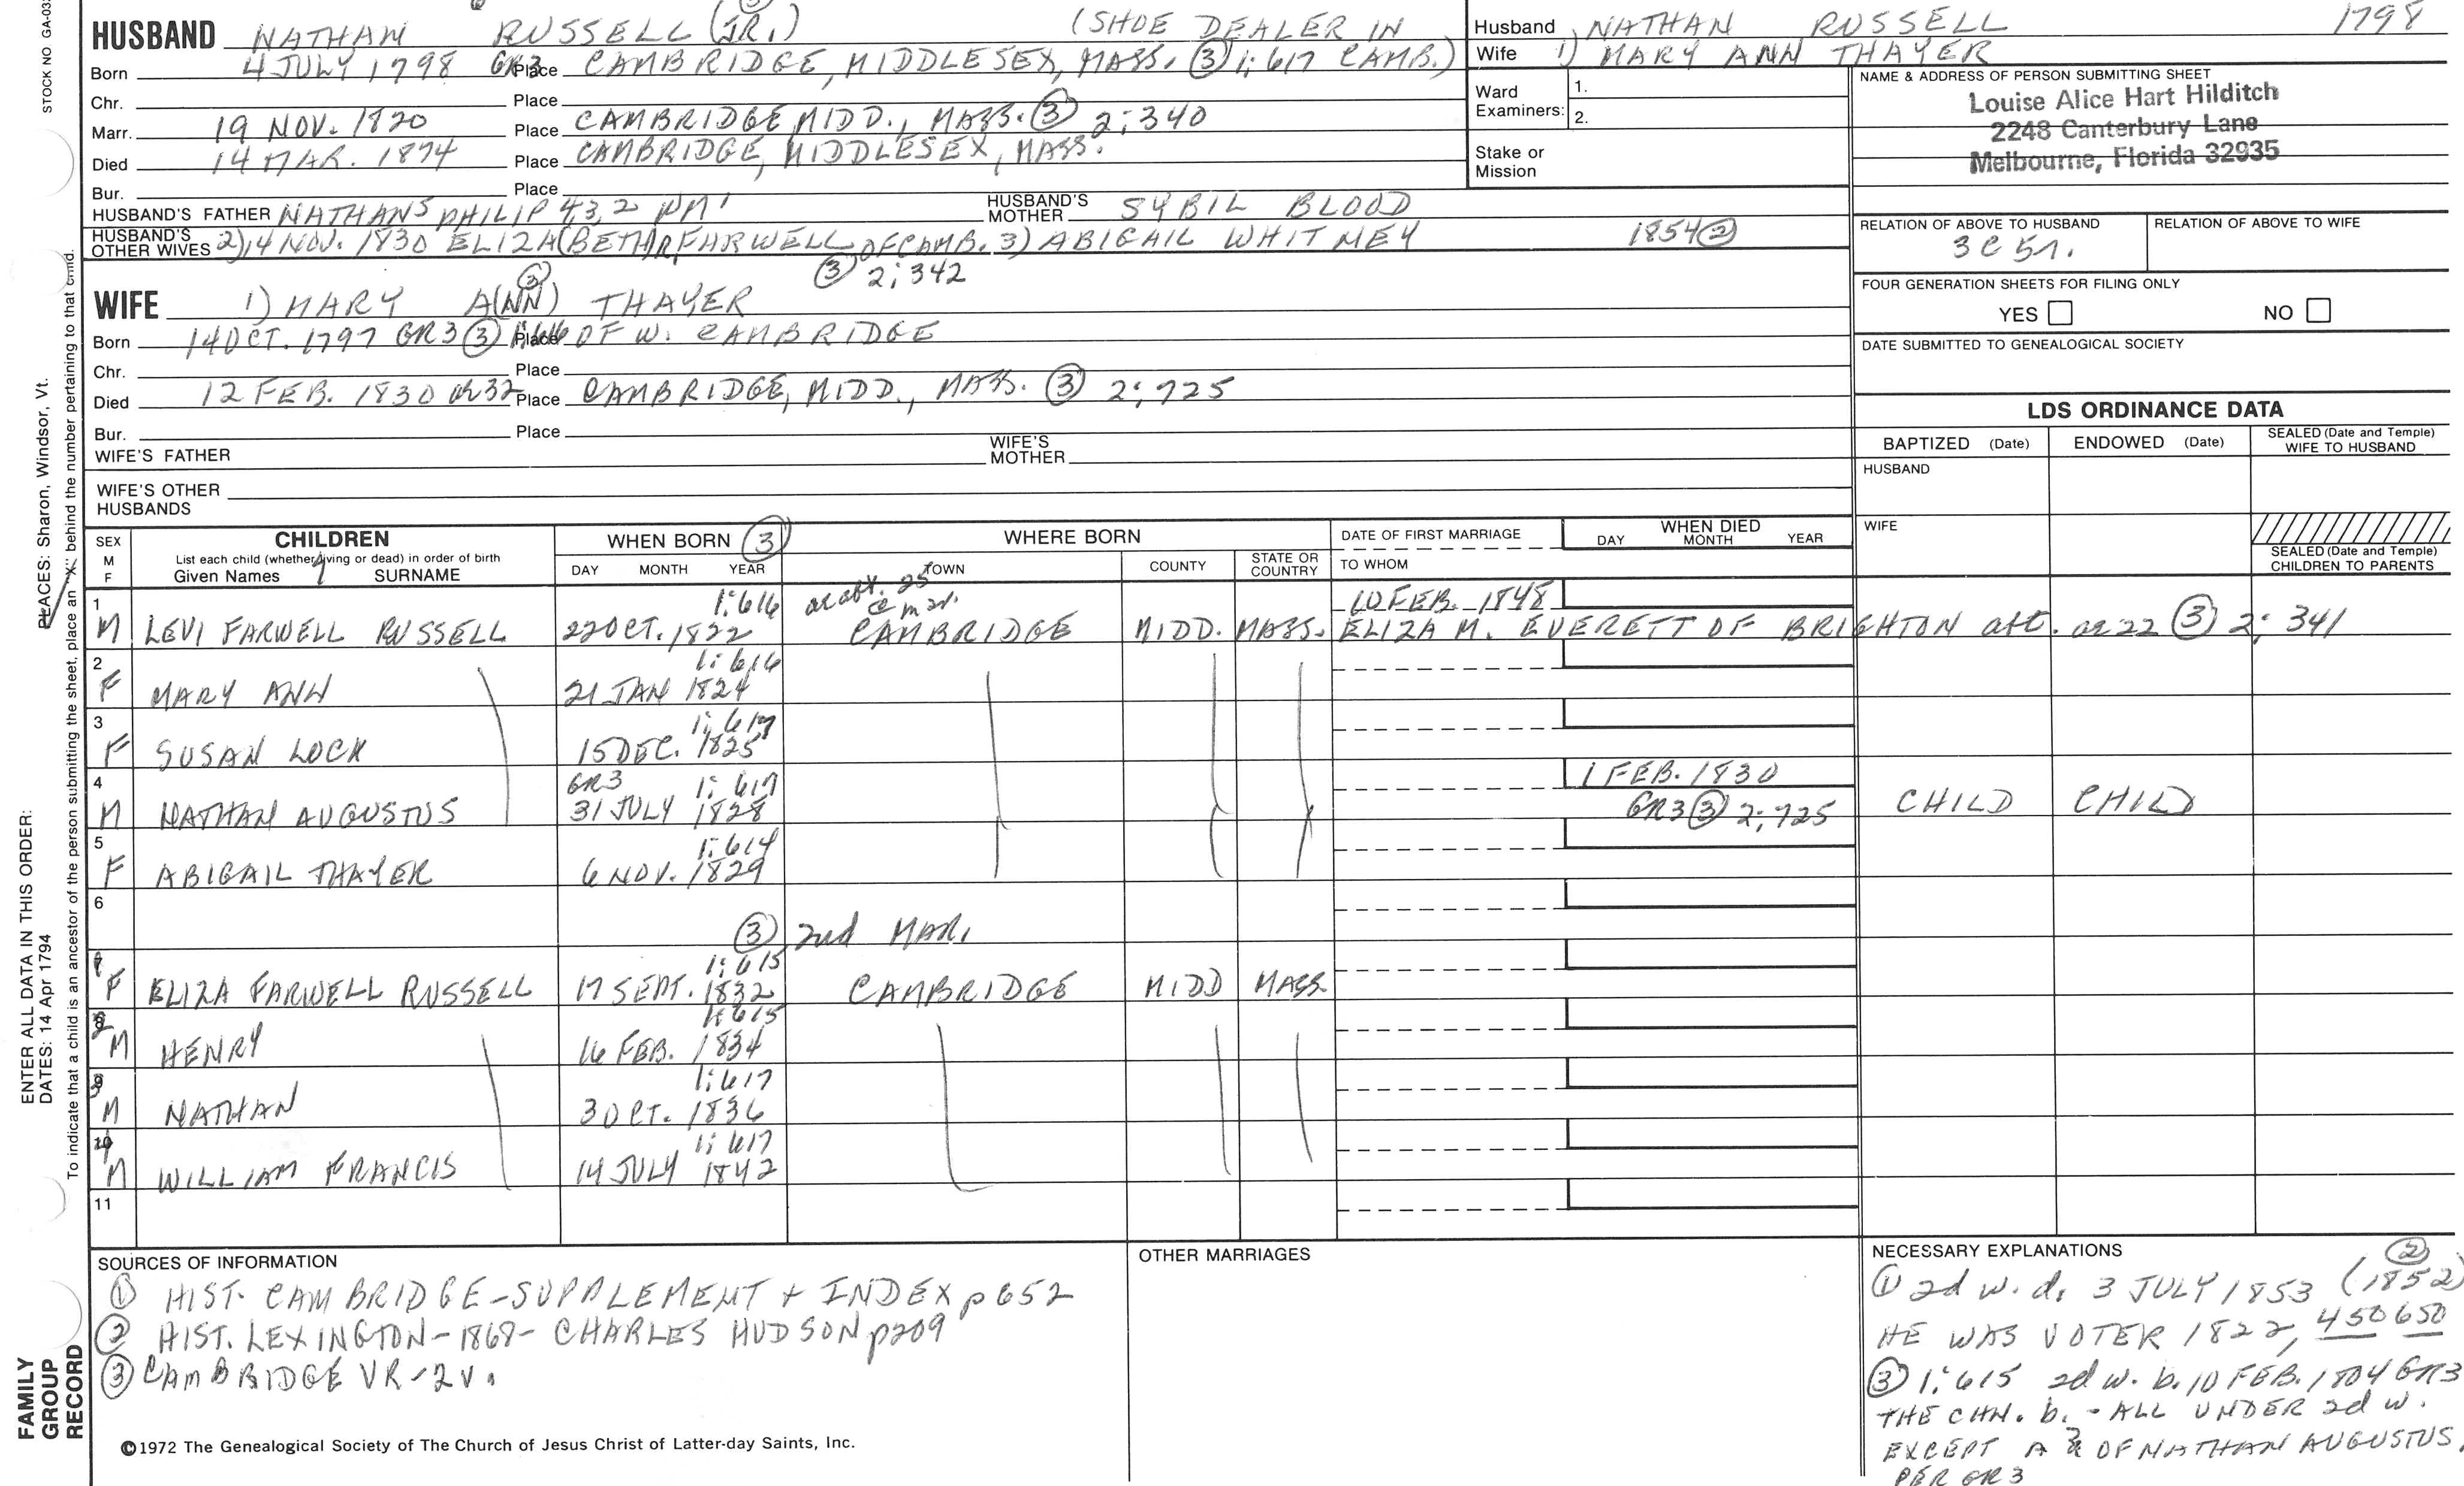 STOCK NO GA-03
HUSBAND NATHAN RUSSELL (JR.) (SHOE DEALER IN
Born 4 JULY 1798 GR3 Place CAMBRIDGE, MIDDLESEX, MASS. ③ 1:617 CAMB.)
Chr. Place
Marr. 19 NOV. 1820 Place CAMBRIDGE MIDD., MASS. ③ 2:340
Died 14 MAR. 1874 Place CAMBRIDGE, MIDDLESEX, MASS.
Bur. Place
HUSBAND'S FATHER NATHAN5 PHILIP 4,3,2 WM1 HUSBAND'S MOTHER SYBIL BLOOD
HUSBAND'S OTHER WIVES 2) 14 NOV. 1830 ELIZA(BETH) FARWELL OF CAMB. 3) ABIGAIL WHITNEY 1854 ②
③ 2:342
Husband NATHAN RUSSELL 1798
Wife 1) MARY ANN THAYER
Ward Examiners: 1.
2.
Stake or Mission
NAME & ADDRESS OF PERSON SUBMITTING SHEET
Louise Alice Hart Hilditch
2248 Canterbury Lane
Melbourne, Florida 32935
RELATION OF ABOVE TO HUSBAND RELATION OF ABOVE TO WIFE
3C5r.
FOUR GENERATION SHEETS FOR FILING ONLY
YES NO
DATE SUBMITTED TO GENEALOGICAL SOCIETY
③
WIFE 1) MARY A(NN) THAYER
Born 14 OCT. 1797 GR3 ③ 1:616 Place OF W. CAMBRIDGE
Chr. Place
Died 12 FEB. 1830 OR 32 Place CAMBRIDGE, MIDD., MASS. ③ 2:725
Bur. Place
WIFE'S FATHER WIFE'S MOTHER
WIFE'S OTHER HUSBANDS
LDS ORDINANCE DATA
BAPTIZED (Date) ENDOWED (Date) SEALED (Date and Temple) WIFE TO HUSBAND
HUSBAND
WIFE
SEALED (Date and Temple) CHILDREN TO PARENTS
SEX M F CHILDREN
List each child (whether living or dead) in order of birth
Given Names SURNAME
WHEN BORN ③
DAY MONTH YEAR
WHERE BORN
TOWN COUNTY STATE OR COUNTRY
DATE OF FIRST MARRIAGE
TO WHOM
WHEN DIED
DAY MONTH YEAR
1 1:616 ae abt. 25 @ mar. 10 FEB. 1848
M LEVI FARWELL RUSSELL 22 OCT. 1822 CAMBRIDGE MIDD. MASS. ELIZA M. EVERETT OF BRIGHTON att. ae 22 ③ 2:341
2 1:616
F MARY ANN 21 JAN 1824
3 1:617
F SUSAN LOCK 15 DEC. 1825
4 GR3 1:617 1 FEB. 1830
M NATHAN AUGUSTUS 31 JULY 1828 GR3 ③ 2:725 CHILD CHILD
5 1:614
F ABIGAIL THAYER 6 NOV. 1829
6
③ 2nd MAR.
1:615
F ELIZA FARWELL RUSSELL 17 SEPT. 1832 CAMBRIDGE MIDD MASS.
1:615
M HENRY 16 FEB. 1834
1:617
M NATHAN 3 OCT. 1836
1:617
M WILLIAM FRANCIS 14 JULY 1842
11
SOURCES OF INFORMATION
① HIST. CAMBRIDGE-SUPPLEMENT + INDEX p 652
② HIST. LEXINGTON-1868- CHARLES HUDSON p209
③ CAMBRIDGE VR-2v.
©1972 The Genealogical Society of The Church of Jesus Christ of Latter-day Saints, Inc.
OTHER MARRIAGES
NECESSARY EXPLANATIONS ②
① 2d w. d. 3 JULY 1853 (1852)
HE WAS VOTER 1822, 450 650
③ 1:615 2d w. b. 10 FEB. 1804 GR3
THE CHN. b. - ALL UNDER 2d w.
EXCEPT A OF NATHAN AUGUSTUS,
PER GR3
ENTER ALL DATA IN THIS ORDER:
DATES: 14 Apr 1794 PLACES: Sharon, Windsor, Vt.
To indicate that a child is an ancestor of the person submitting the sheet, place an "X" behind the number pertaining to that child.
FAMILY
GROUP
RECORD